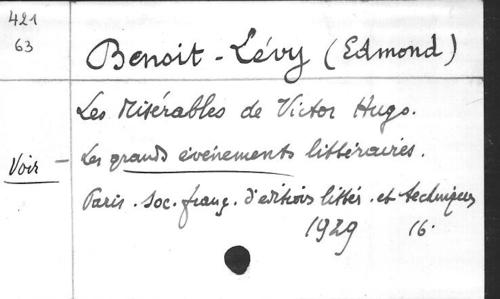 421
63
Benoit-Lévy (Edmond)
Les Misérables de Victor Hugo.
Voir - Les grands événements littéraires.
Paris. Soc. franç. d'editions littér. et techniques
1929 16.